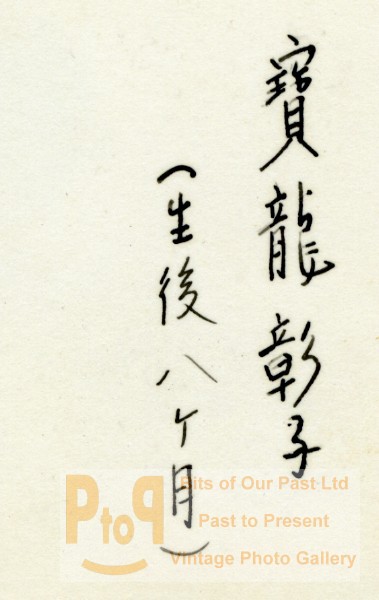 寶龍彰子
(生後八ケ月)
PtoP
Bits of Our Past Ltd
Past to Present
Vintage Photo Gallery